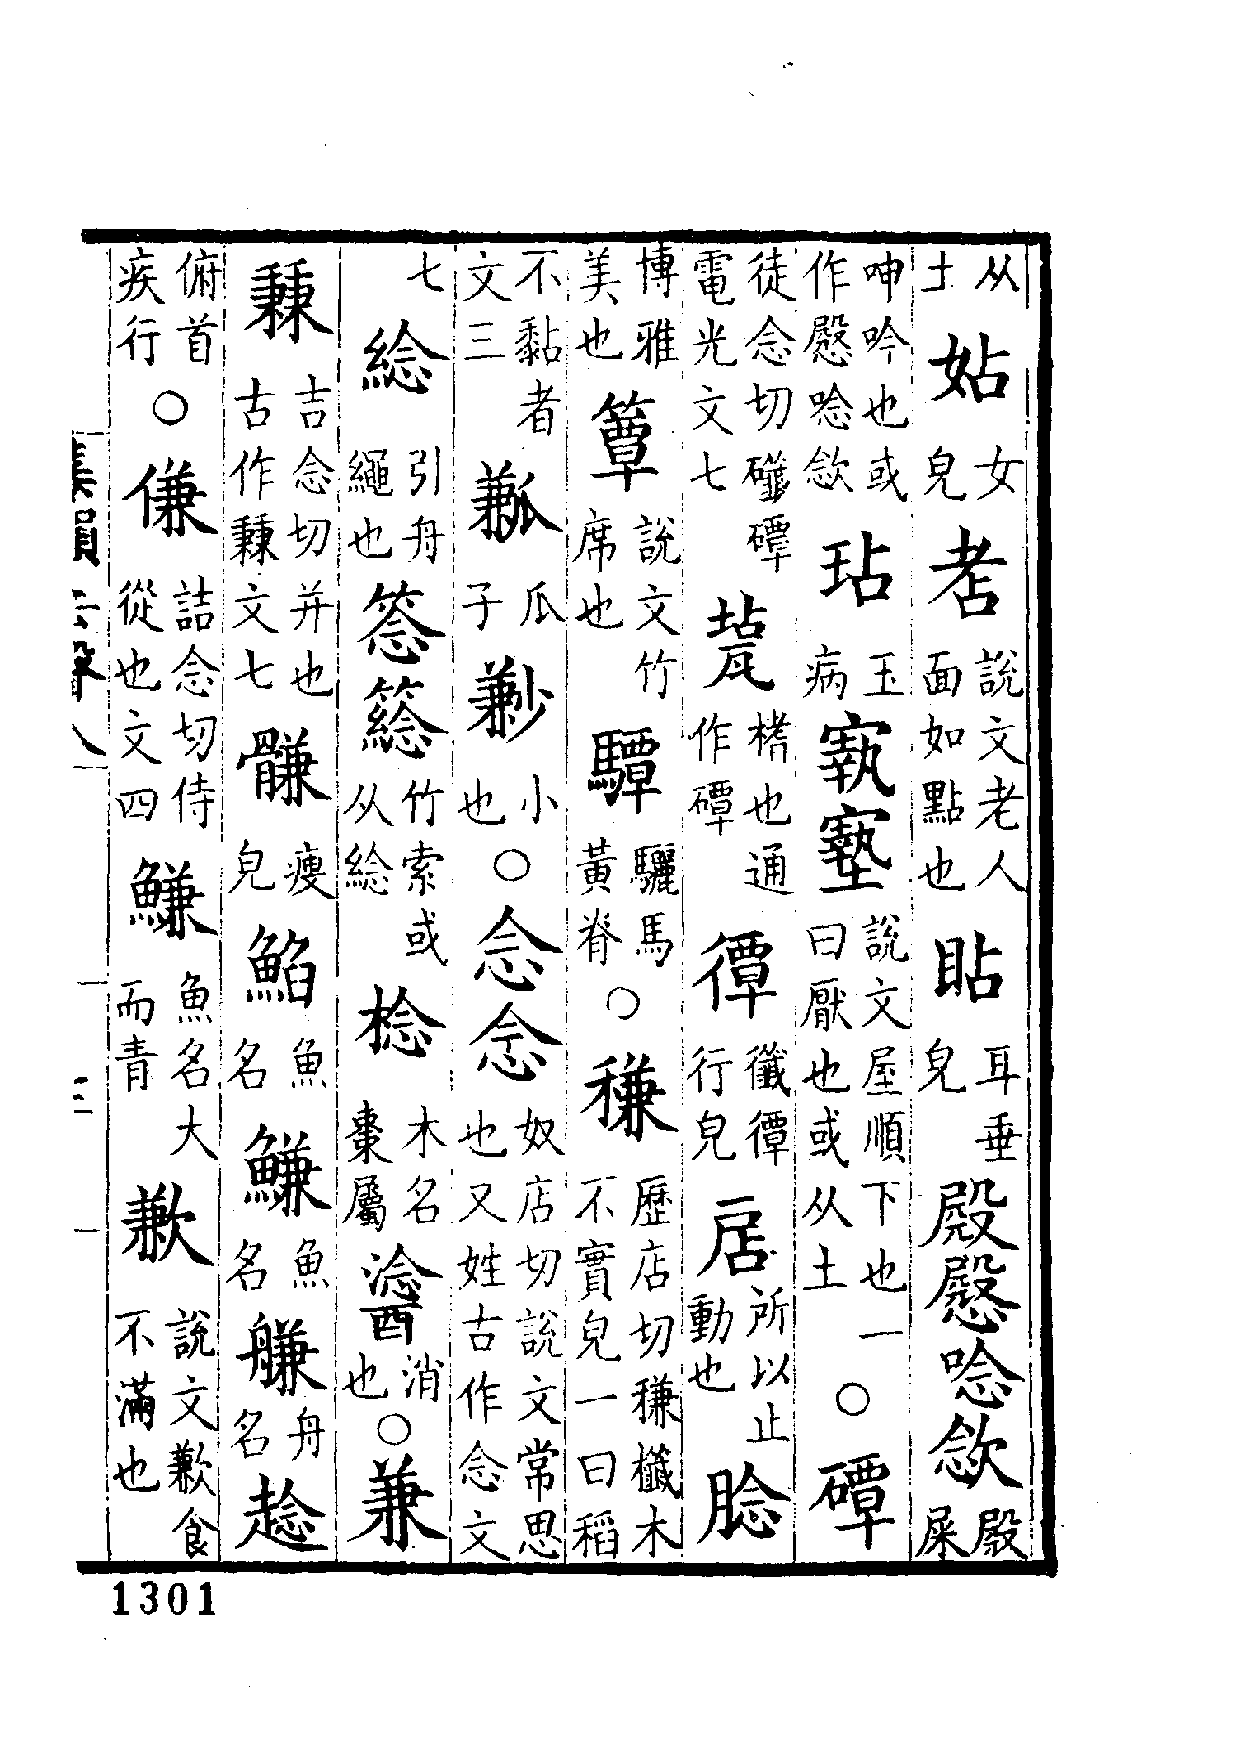 从土姑女皃耉說文老人面如點也貼耳垂皃殿慇唸欦殿屎
呻吟也或作慇唸欦玷玉病㝪墊說文屋傾下也一曰厭也或从土○磹
徒念切礷磹電光文七㼭楮也通作磹徸徸行皃扂所以止動也腍
博雅美也簟說文竹席也驔驪馬黃脊○稴歷店切稴䆎木不實皃一曰稻
不黏者文三㼓瓜子尠小也○念念奴店切說文常思也又姓古作念文
七綐引舟繩也簽䉞竹索或从綐棯木名棗屬㴽消也○兼
吉念切并也古作兼文七䯡瘦皃鮥魚名鰜魚名䑺舟名趝
俯首疾行○傔詰念切侍從也文四鰜魚名大而青歉說文歉食不滿也
集韻去聲八
1301